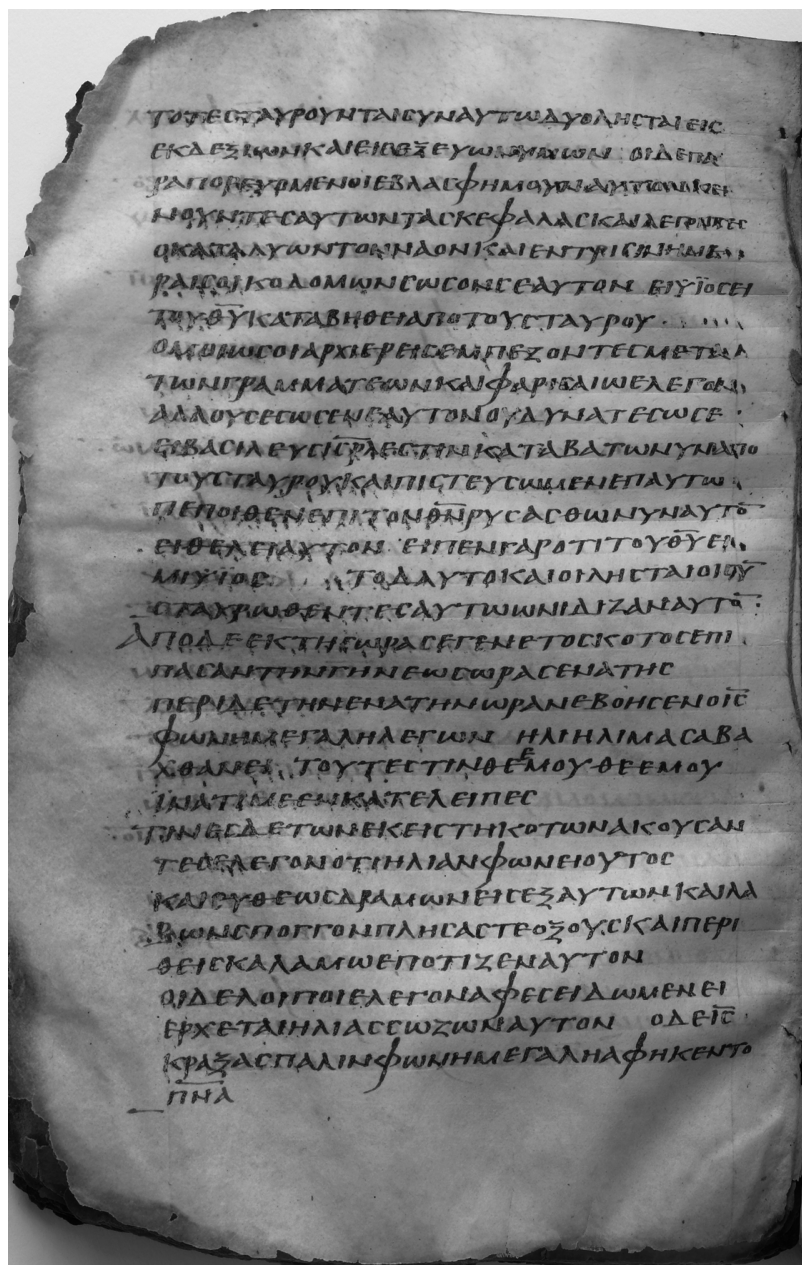 ΤΟΤΕСΤΑΥΡΟΥΝΤΑΙСΥΝΑΥΤΩΔΥΟΛΗСΤΑΙΕΙС
ΕΚΔΕΞΙΩΝΚΑΙΕΙСΕΞΕΥΩΝΥΜΩΝ ΟΙΔΕΠΑ
ΡΑΠΟΡΕΥΟΜΕΝΟΙΕΒΛΑСΦΗΜΟΥΝΑΥΤΟΝΚΕΙ
ΝΟΥΝΤΕСΑΥΤΩΝΤΑСΚΕΦΑΛΑСΚΑΙΛΕΓΟΝΤΕС
ΟΚΑΤΑΛΥΩΝΤΟΝΝΑΟΝΚΑΙΕΝΤΡΙСΙΝΗΜΕ
ΡΑΙСΟΙΚΟΔΟΜΩΝСΩСΟΝСΕΑΥΤΟΝ ΕΙΥΙΟСΕΙ
ΤΟΥΘ̅Υ̅ΚΑΤΑΒΗΘΕΙΑΠΟΤΟΥСΤΑΥΡΟΥ
ΟΜΟΙΩСΟΙΑΡΧΙΕΡΕΙСΕΜΠΕΖΟΝΤΕСΜΕΤΑ
ΤΩΝΓΡΑΜΜΑΤΕΩΝΚΑΙΦΑΡΙСΑΙΩΕΛΕΓΟΝ
ΑΛΛΟΥСΕСΩСΕΝΕΑΥΤΟΝΟΥΔΥΝΑΤΕСΩСΕ
ΕΙΒΑСΙΛΕΥСΙ̅Σ̅Ρ̅Λ̅ΕСΤΙΝΚΑΤΑΒΑΤΩΝΥΝΑΠΟ
ΤΟΥСΤΑΥΡΟΥΚΑΙΠΙСΤΕΥСΩΜΕΝΕΠΑΥΤΩ
ΠΕΠΟΙΘΕΝΕΠΙΤΟΝΘ̅Ν̅ΡΥСΑСΘΩΝΥΝΑΥΤΟ̅
ΕΙΘΕΛΕΙΑΥΤΟΝ ΕΙΠΕΝΓΑΡΟΤΙΤΟΥΘ̅Υ̅ΕΙ
ΜΙΥΙΟС ΤΟΔΑΥΤΟΚΑΙΟΙΛΗСΤΑΙΟΙСΥ̅
СΤΑΥΡΩΘΕΝΤΕСΑΥΤΩΩΝΙΔΙΖΑΝΑΥΤΟ̅
ΑΠΟΔΕΕΚΤΗСΩΡΑСΕΓΕΝΕΤΟСΚΟΤΟСΕΠΙ
ΠΑСΑΝΤΗΝΓΗΝΕΩСΩΡΑСΕΝΑΤΗС
ΠΕΡΙΔΕΤΗΝΕΝΑΤΗΝΩΡΑΝΕΒΟΗСΕΝΟΙ̅С̅
ΦΩΝΗΜΕΓΑΛΗΛΕΓΩΝ ΗΛΙΗΛΙΜΑСΑΒΑ
ΧΘΑΝΕΙ ΤΟΥΤΕСΤΙΝΘΕΕΜΟΥΘΕΕΜΟΥ
ΙΝΑΤΙΜΕΕΝΚΑΤΕΛΕΙΠΕС
ΤΙΝΕСΔΕΤΩΝΕΚΕΙСΤΗΚΟΤΩΝΑΚΟΥСΑΝ
ΤΕСΕΛΕΓΟΝΟΤΙΗΛΙΑΝΦΩΝΕΙΟΥΤΟС
ΚΑΙΕΥΘΕΩСΔΡΑΜΩΝΕΙСΕΞΑΥΤΩΝΚΑΙΛΑ
ΒΩΝСΠΟΓΓΟΝΠΛΗСΑСΤΕΟΞΟΥСΚΑΙΠΕΡΙ
ΘΕΙСΚΑΛΑΜΩΕΠΟΤΙΖΕΝΑΥΤΟΝ
ΟΙΔΕΛΟΙΠΟΙΕΛΕΓΟΝΑΦΕСΕΙΔΩΜΕΝΕΙ
ΕΡΧΕΤΑΙΗΛΙΑССΩΖΩΝΑΥΤΟΝ ΟΔΕΙ̅С̅
ΚΡΑΞΑСΠΑΛΙΝΦΩΝΗΜΕΓΑΛΗΑΦΗΚΕΝΤΟ
Π̅Ν̅Α̅